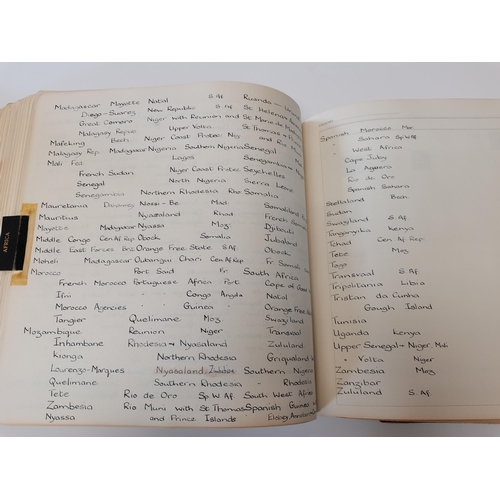 Madagascar Mayotte Natal S. Af. Ruanda - Urun
Diego-Suarez New Republic S. Af St. Helenan Ascen
Great Comoro Niger with Reunion and St. Marie de Ma
Malagasy Repub Upper Volta St Thomas + P
Mafeking Bech. Niger Coast Protec. Nig and Ru
Malagasy Rep. Madagascar Nigeria Southern Nigeria Senegal
Mali Fed. Lagos Senegambia
French Sudan Niger Coast Protec Seychelles
Senegal North Nigeria Sierra Leone
Senegambia Northern Rhodesia Rho Somalia
Mauretania Dahomey Nossi-Be Mad. Somaliland
Mauritius Nyasaland Rhod French Som
Mayotte Madagascar Nyassa Moz Djibouti
Middle Congo Cen Af Rep Obock Somalia Jubaland
Middle East Forces Brit. Orange Free State S. Af Obock
Moheli Madagascar Oubangui Chari Cen Af Rep Fr. Somali
Morocco Port Said Fr. South Africa
French Morocco Portuguese Africa Port Cape of Good
Ifni " Congo Angola Natal
Morocco Agencies " Guinea " Orange Free Sta
Tangier Quelimane Moz Swaziland
Mozambique Reunion Niger Transvaal
Inhambane Rhodesia + Nyasaland Zululand
Kionga Northern Rhodesia Griqualand
Lourenzo-Marques Nyasaland. Southern Nigeria
Quelimane Southern Rhodesia " Rhodesia
Tete Rio de Oro Sp W Af. South West Africa
Zambesia Rio Muni with St Thomas Spanish Guinea
Nyassa and Prince Islands
AFRICA
Spanish Morocco Mor.
" Sahara Sp W Af
" West Africa
Cape Juby
La Aguera
Rio de Oro
Spanish Sahara
Stellaland Bech.
Sudan
Swaziland S Af
Tanganyika Kenya
Tchad Cen Af Rep
Tete Moz
Togo
Transvaal S Af.
Tripolitania Libia
Tristan da Cunha
Gough Island
Tunisia
Uganda Kenya
Upper Senegal + Niger. Mali
" Volta Niger
Zambesia Moz
Zanzibar
Zululand S. Af.